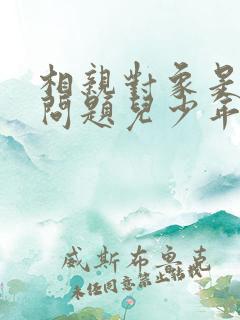 相親對象是
問題兒少年
威斯布魯克
未任同意禁止轉載